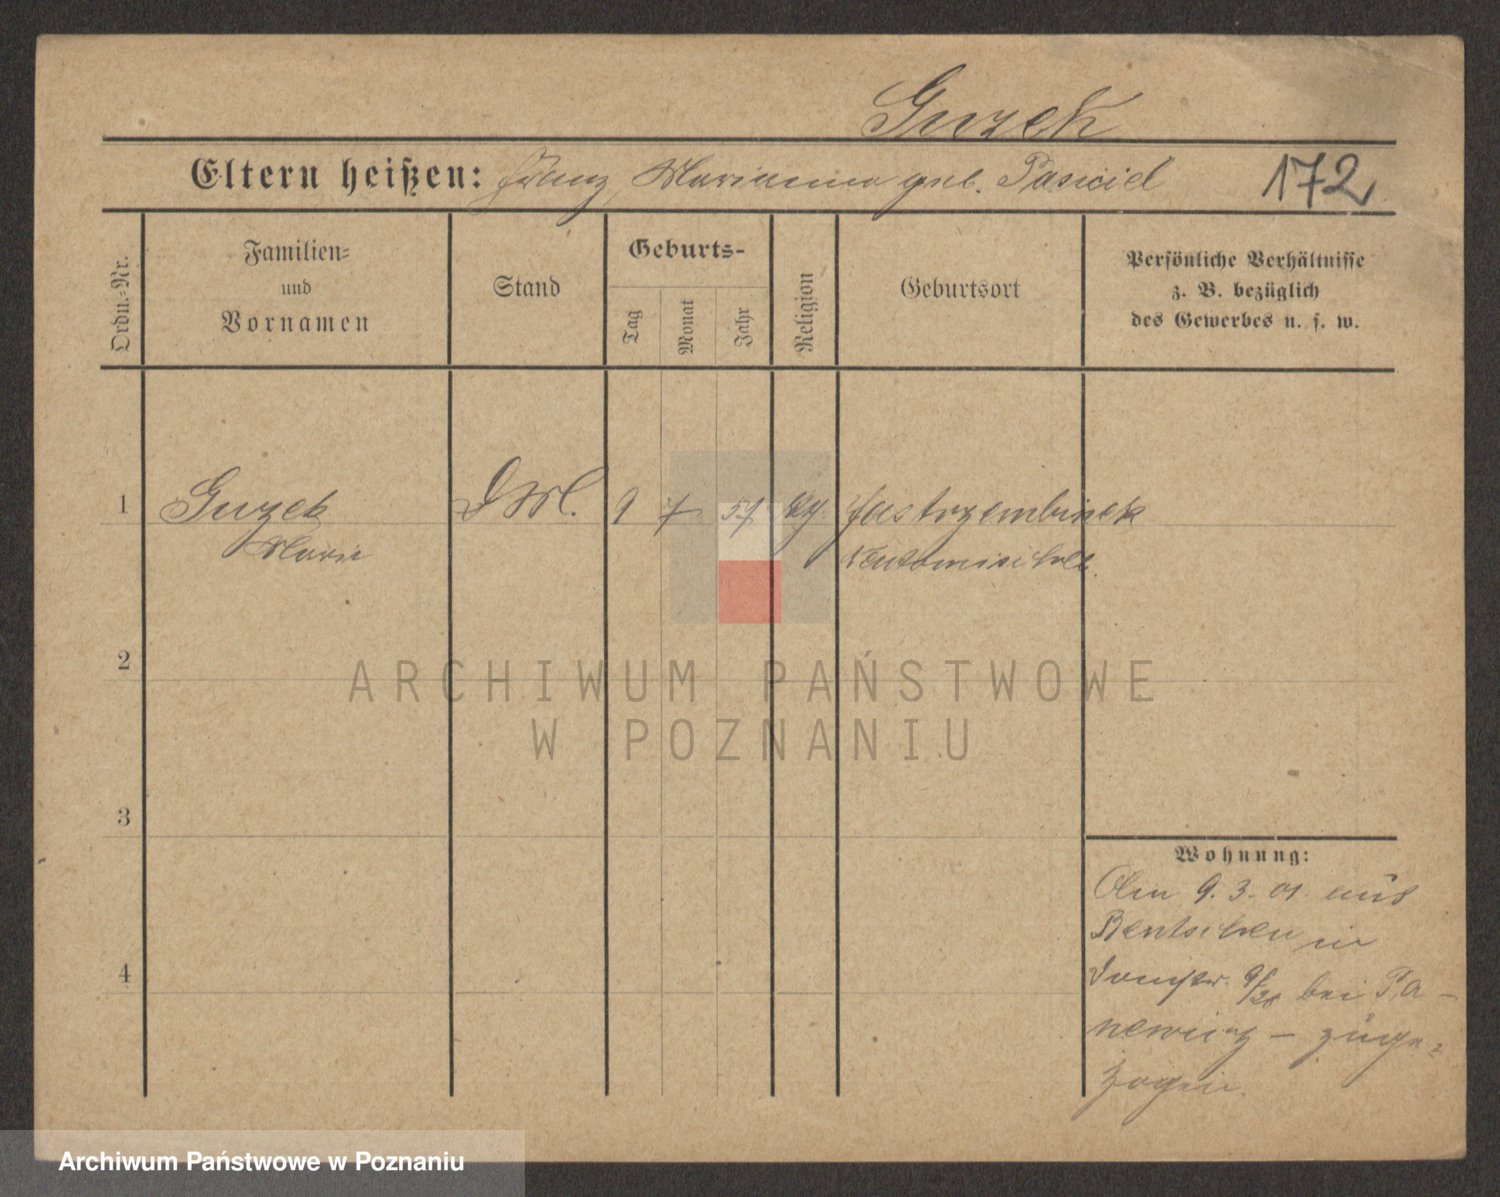 Guzek
Eltern heißen: Franz, Marianna geb. 172
Ordn.=Nr.
Familien=
und
Vornamen
Stand
Geburts-
Tag
Monat
Jahr
Religion
Geburtsort
Persönliche Verhältnisse
z. B. bezüglich
des Gewerbes u. s. w.
1 Guzek D M. 9 7 Jastrzembinek
Marie
2
3
4
Wohnung:
Am 9. 3. 01. aus
Bentschen in
bei Pa-
zuge=
zogen.
ARCHIWUM PAŃSTWOWE
W POZNANIU
Archiwum Państwowe w Poznaniu